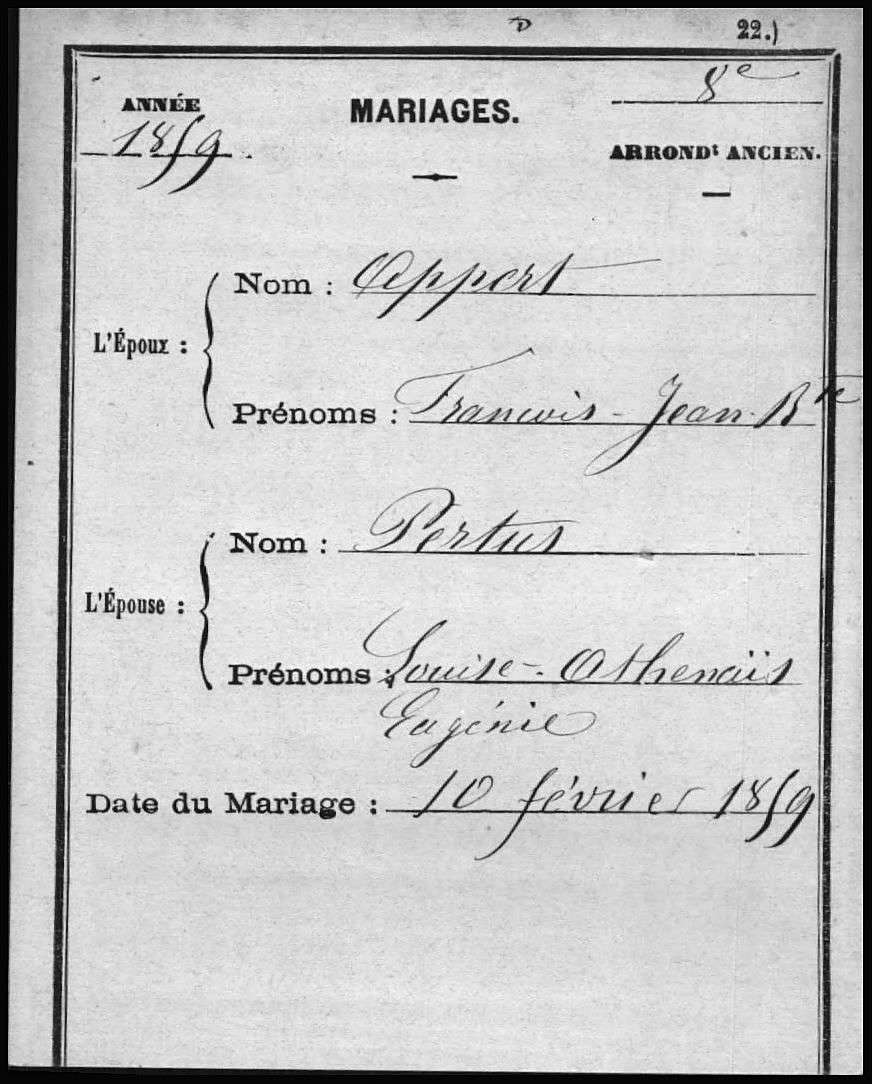 D 22.)
ANNÉE
1859.
MARIAGES.
8e
ARRONDt ANCIEN.
L'Époux :
Nom : Appert
Prénoms : François - Jean-Bte
L'Épouse :
Nom : Pertus
Prénoms : Louise - Athenaïs
Eugénie
Date du Mariage : 10 février 1859